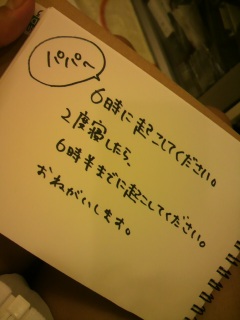 パパへ
6時に起こしてください。
2度寝したら、
6時半までに起こしてください。
おねがいします。